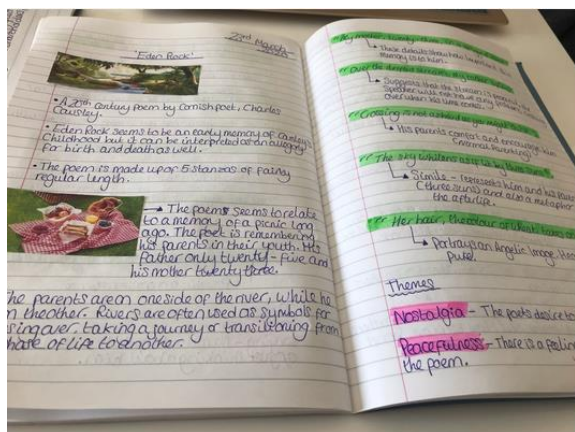 23rd March
'Eden Rock'
• A 20th century poem by Cornish poet, Charles
Causley.
• Eden Rock seems to be an early memory of Causley's
Childhood but it can be interpreted as an allegory
for birth and death as well.
• The poem is made up of 5 stanzas of fairly
regular length.
→ The poems seems to relate
to a memory of a picnic long
ago. The poet is remembering
his parents in their youth. His
father only twenty-five and
his mother twenty three.
The parents are on one side of the river, while he
on the other. Rivers are often used as symbols for
over, taking a journey or transitioning from
phase of life to another.
My mother, twenty-three,
These details show how important this
memory is to him.
Over the drifted stream. My father
Suggests that the stream is
Speaker will not have any
over when his time comes.
Crossing is not as hard as you might think
His parents comfort and encourage him
(normal parenting)
The sky whitens as if lit by three suns
Simile - represents him and his parents
(three suns) and also a metaphor
the afterlife.
Her hair, the colour of wheat, takes on
Portrays an Angelic image.
pure.
Themes
Nostalgia - The poets desire to
Peacefulness - There is a feeling
the poem.